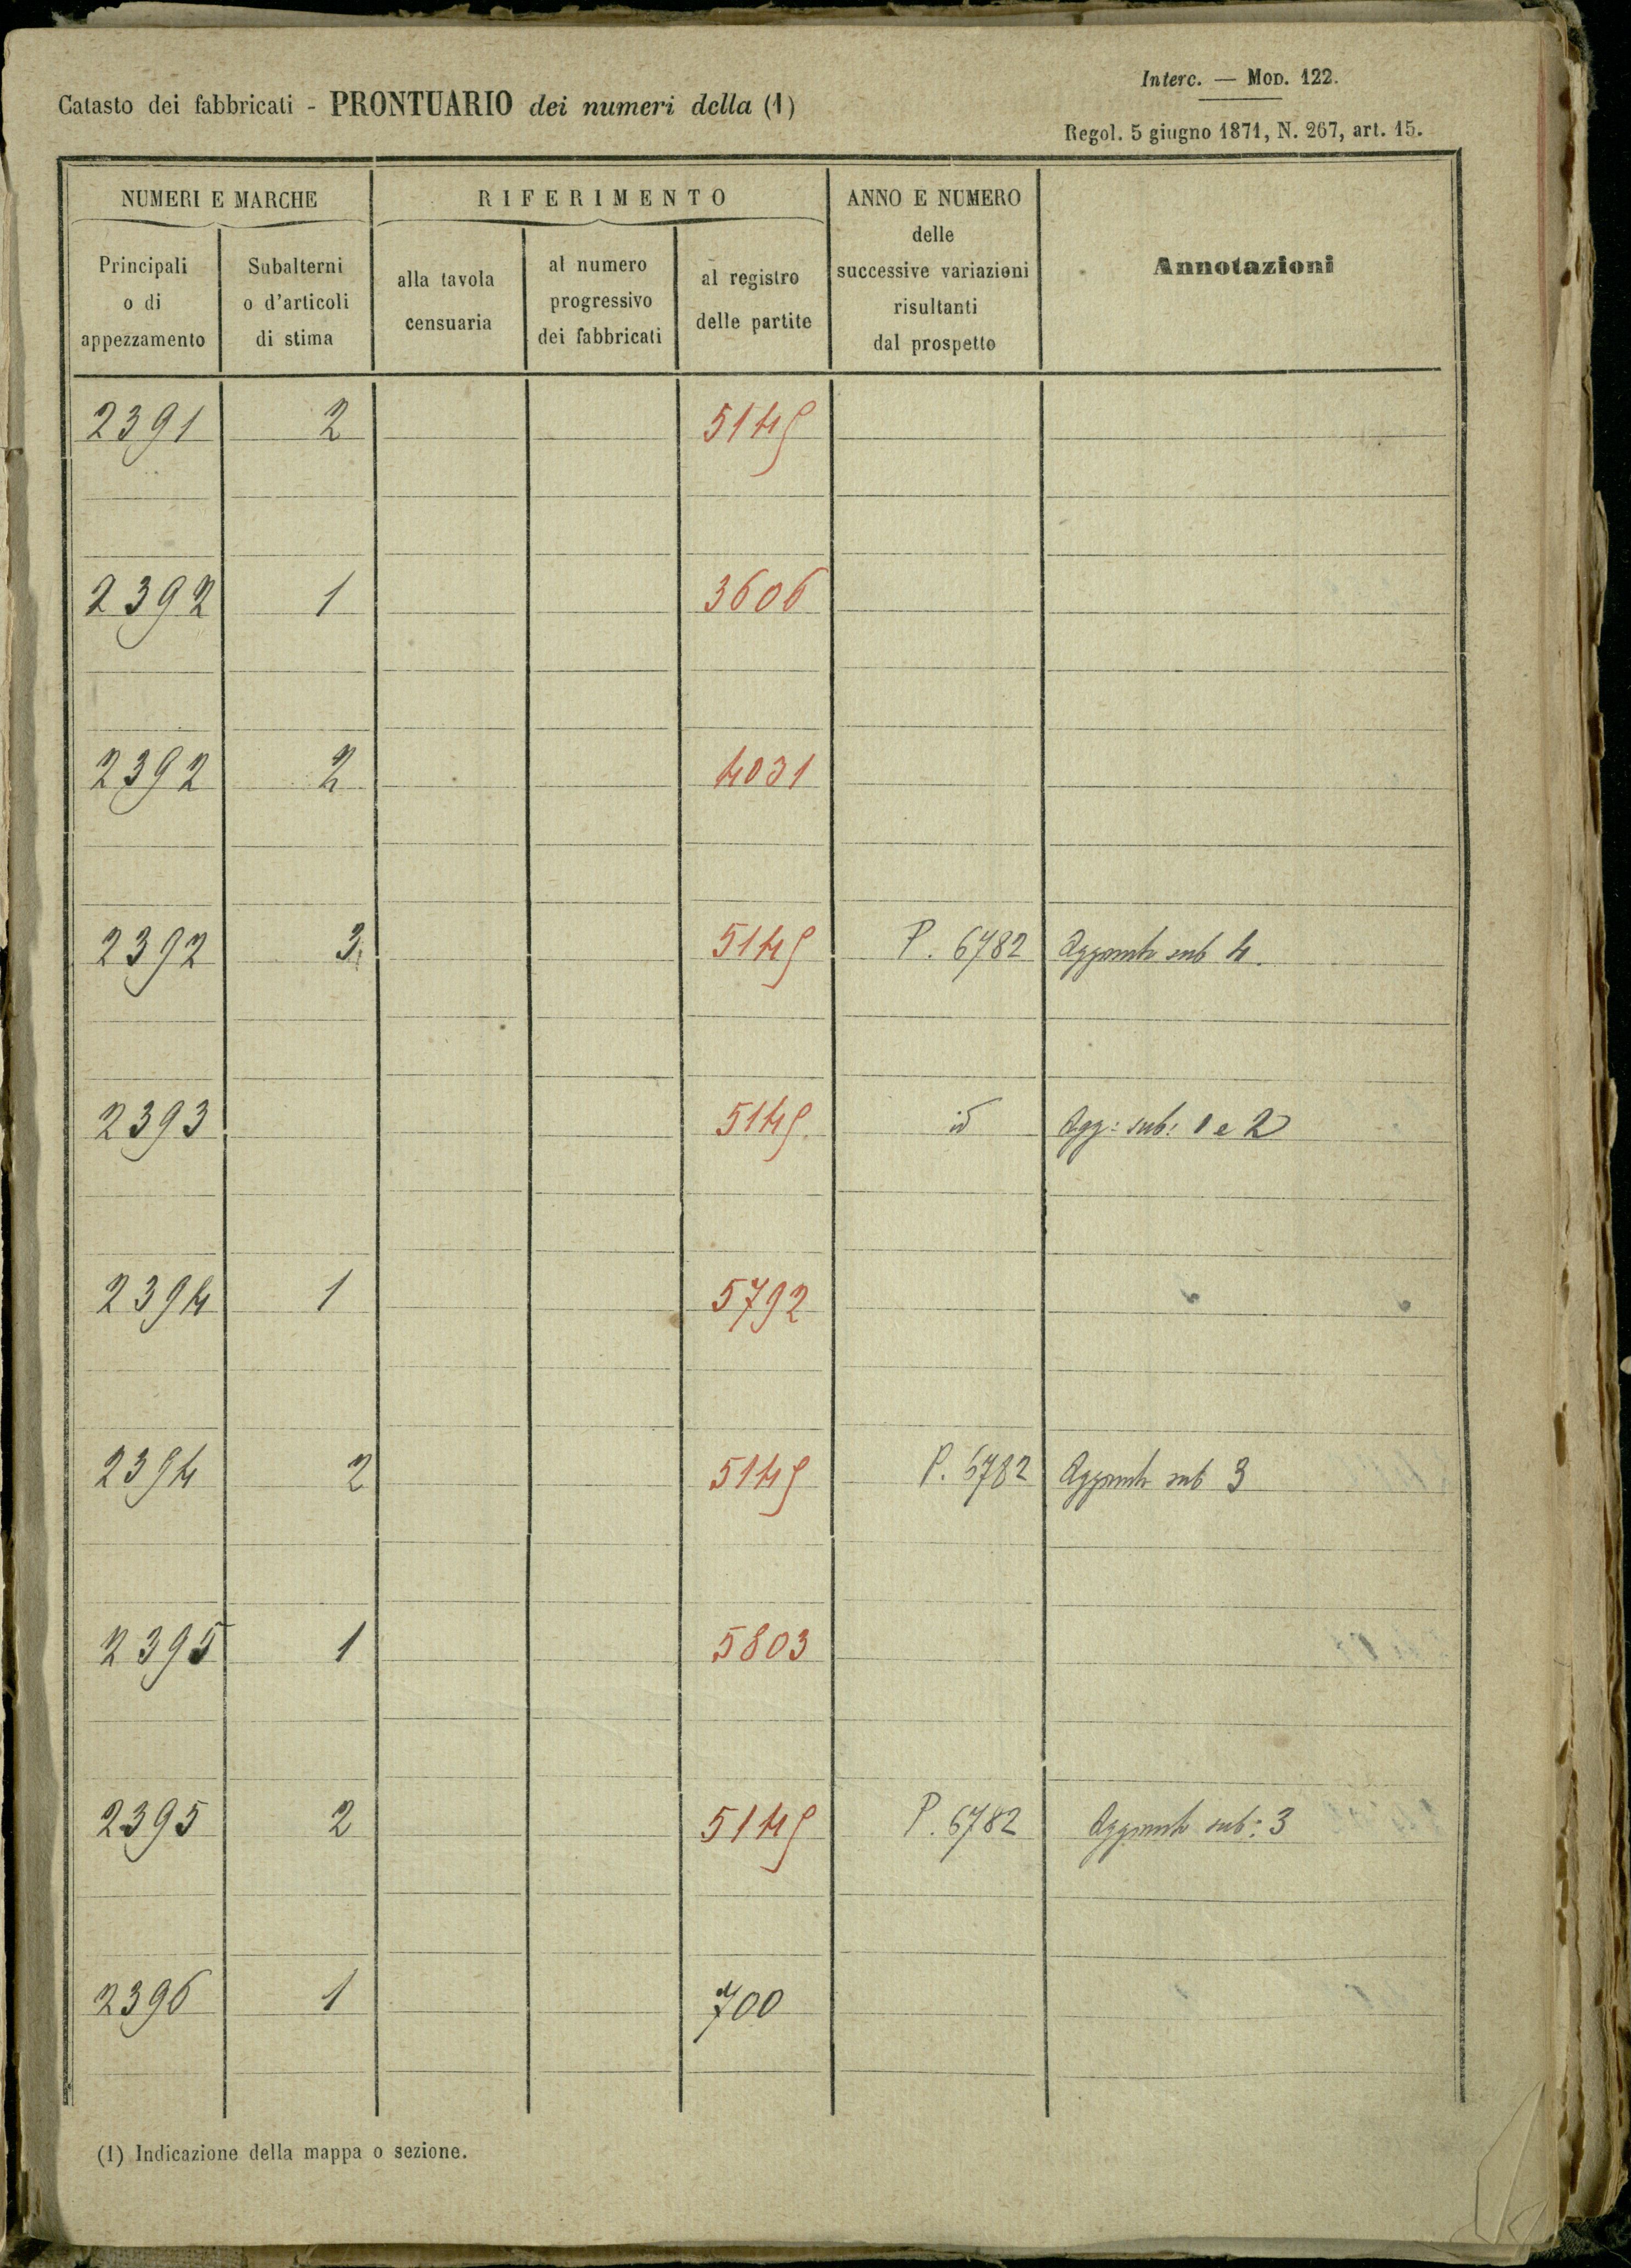 Interc. — Mod. 122.
Catasto dei fabbricati - PRONTUARIO dei numeri della (1)
Regol. 5 giugno 1871, N. 267, art. 15.
NUMERI E MARCHE
RIFERIMENTO
ANNO E NUMERO
delle
successive variazioni
risultanti
dal prospetto
Annotazioni
Principali
o di
appezzamento
Subalterni
o d'articoli
di stima
alla tavola
censuaria
al numero
progressivo
dei fabbricati
al registro
delle partite
2391 2 5149
2392 1 3606
2392 2 4031
2392 3 5149 P. 6782 Aggiunto sub 4.
2393 5149 id Agg: sub: 1 e 2
2394 1 5792
2394 2 5149 P. 6782 Aggiunto sub 3
2395 1 5803
2395 2 5149 P. 6782 Aggiunto sub: 3
2396 1 700
(1) Indicazione della mappa o sezione.